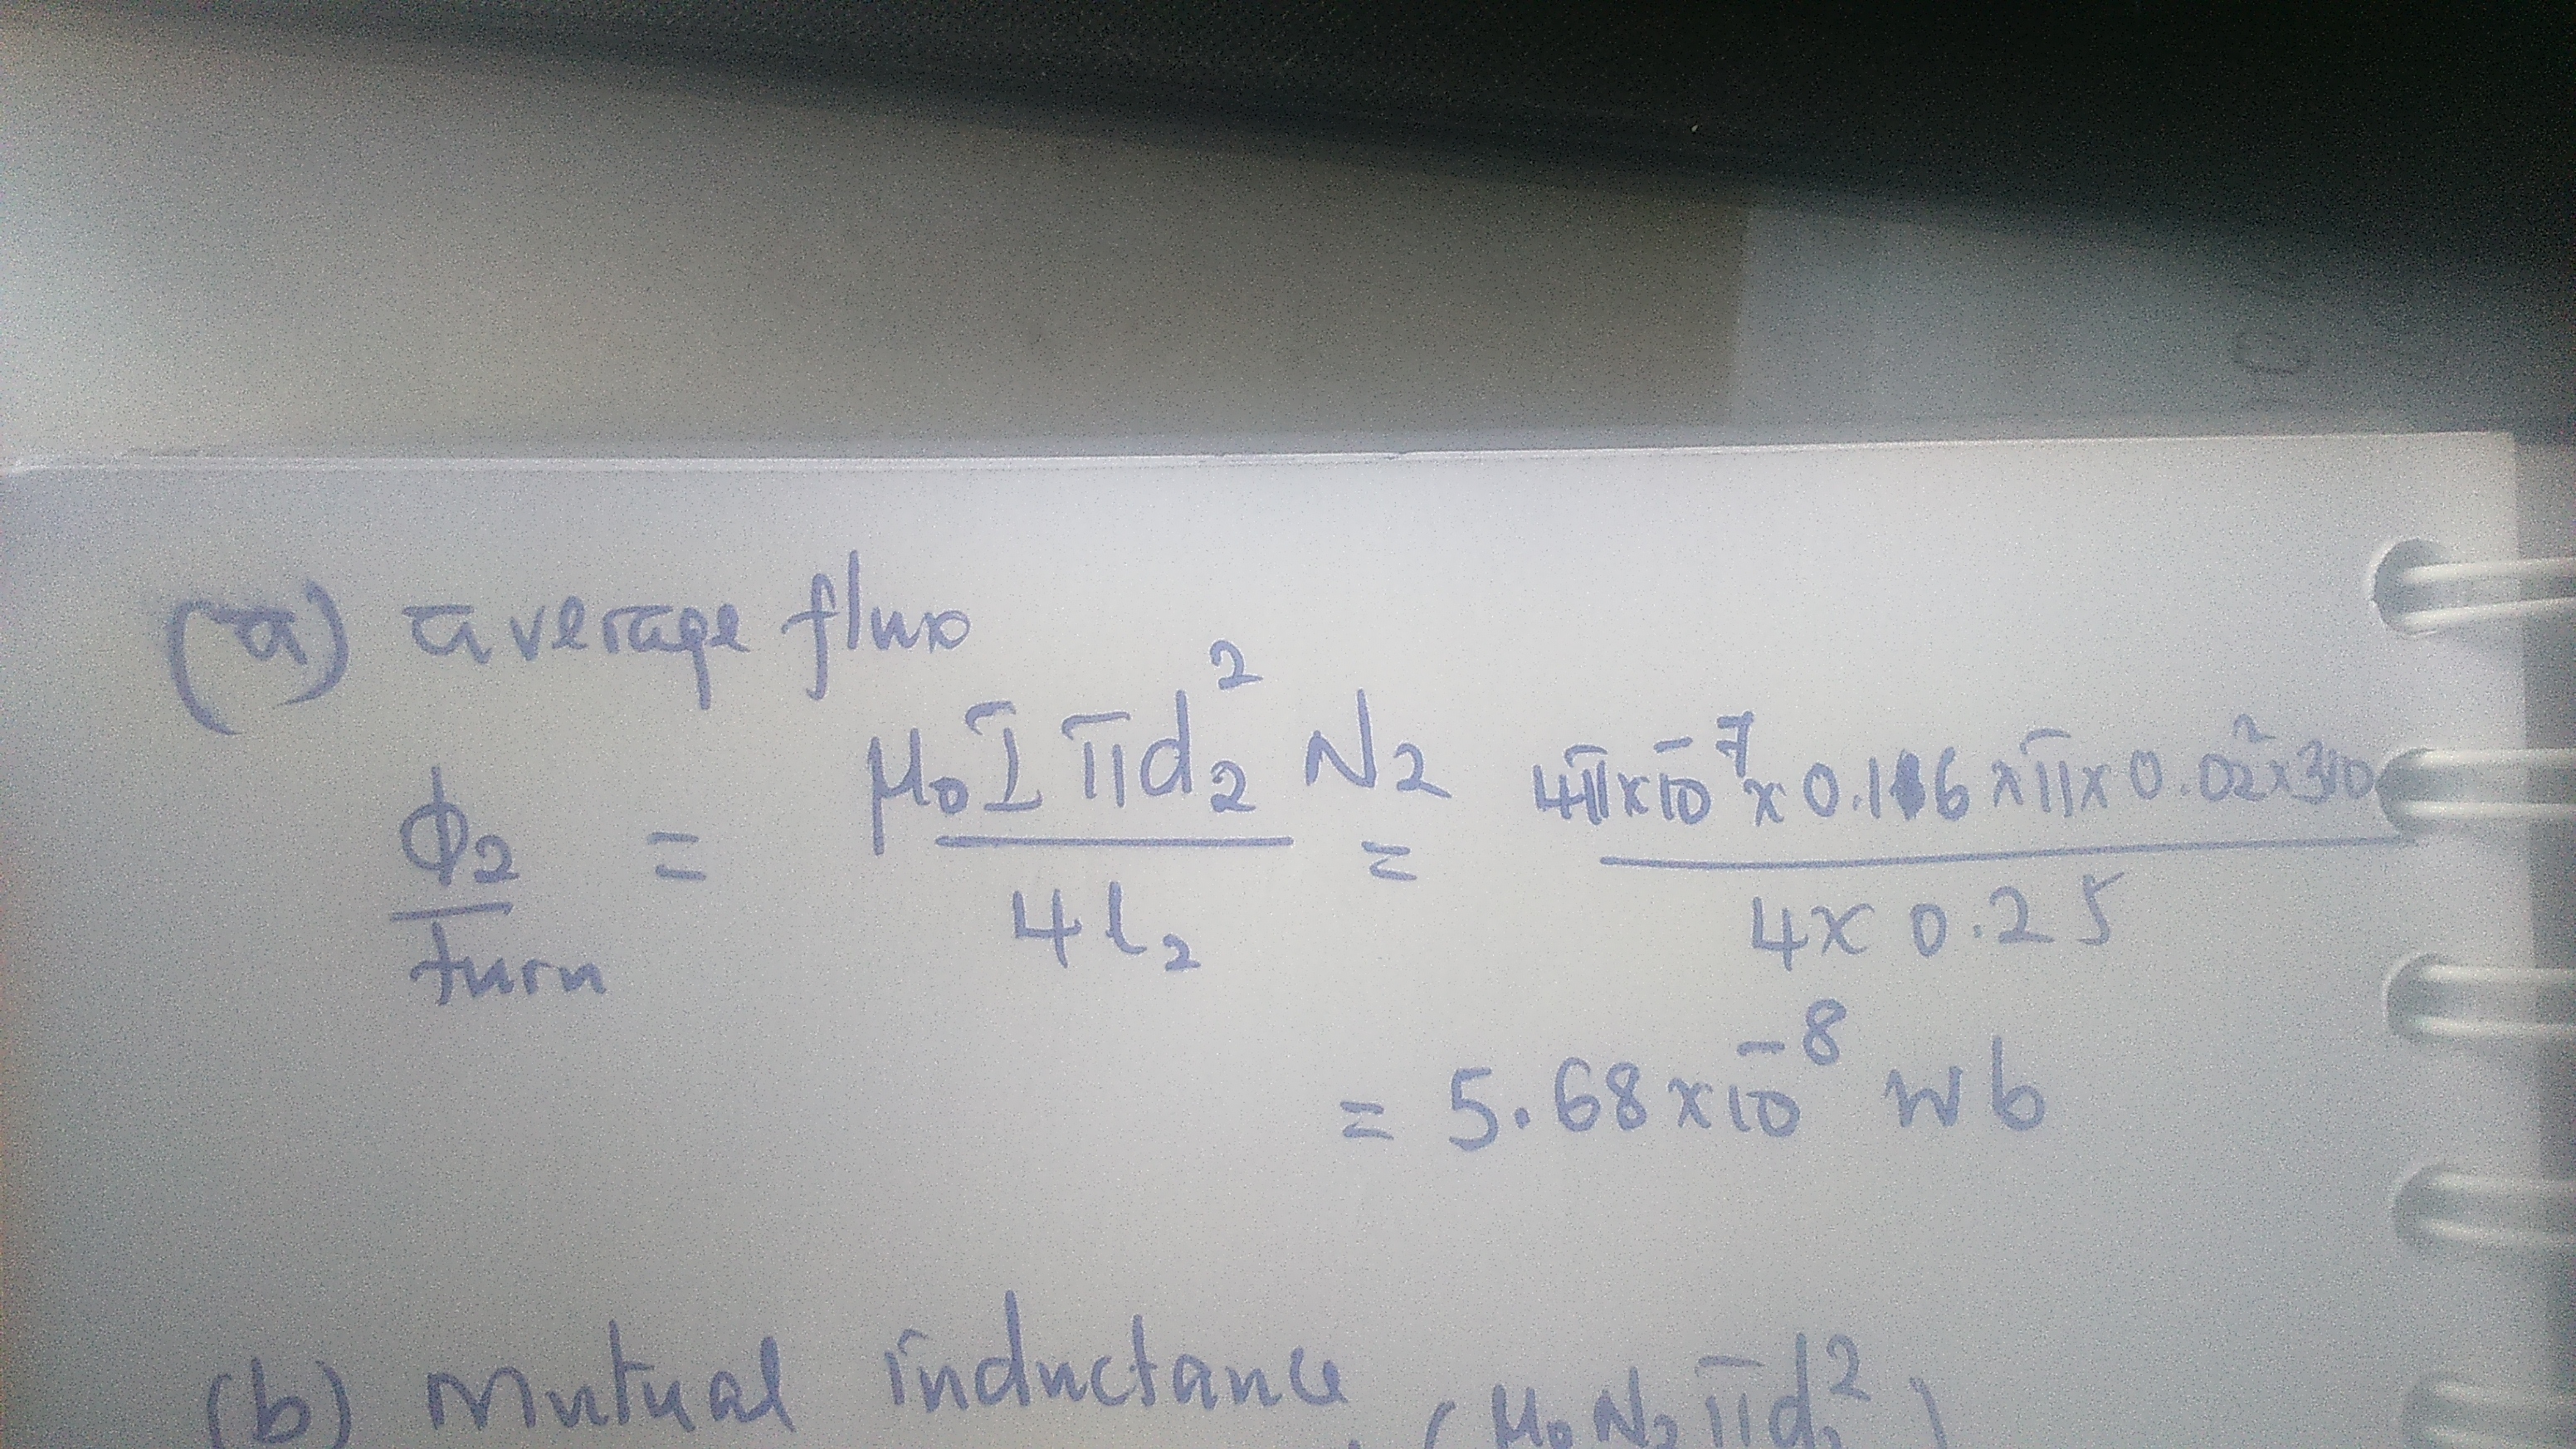 (a) average flux
ϕ₂/turn = μ₀Iπd₂²N₂/4l₂ = 4π×10⁻⁷×0.116×π×0.02²×310/4×0.25
= 5.68×10⁻⁸ wb
(b) Mutual inductance
(μ₀N₂πd₂²)